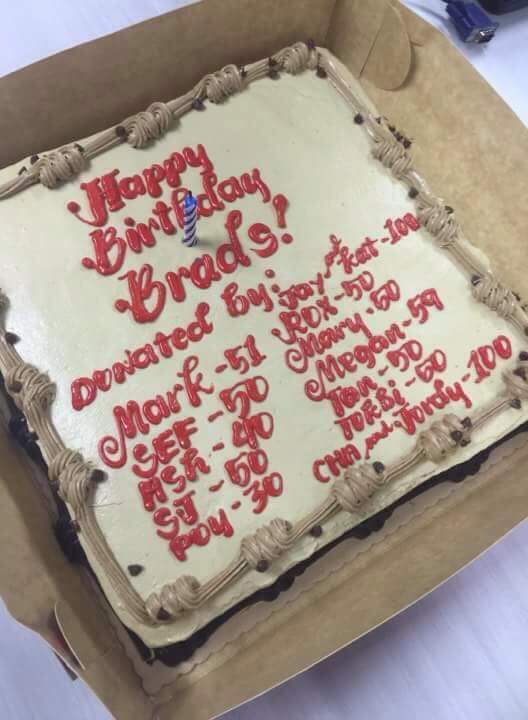 Happy
Birthday
Brads!
Donated by:
Mark - 51
SEF - 50
ASH - 40
SJ - 50
POY - 30
Jay and Kat - 100
ROX - 50
Mary - 50
Megan - 59
Tan - 50
TOEBI - 50
CHA and Jordy - 100